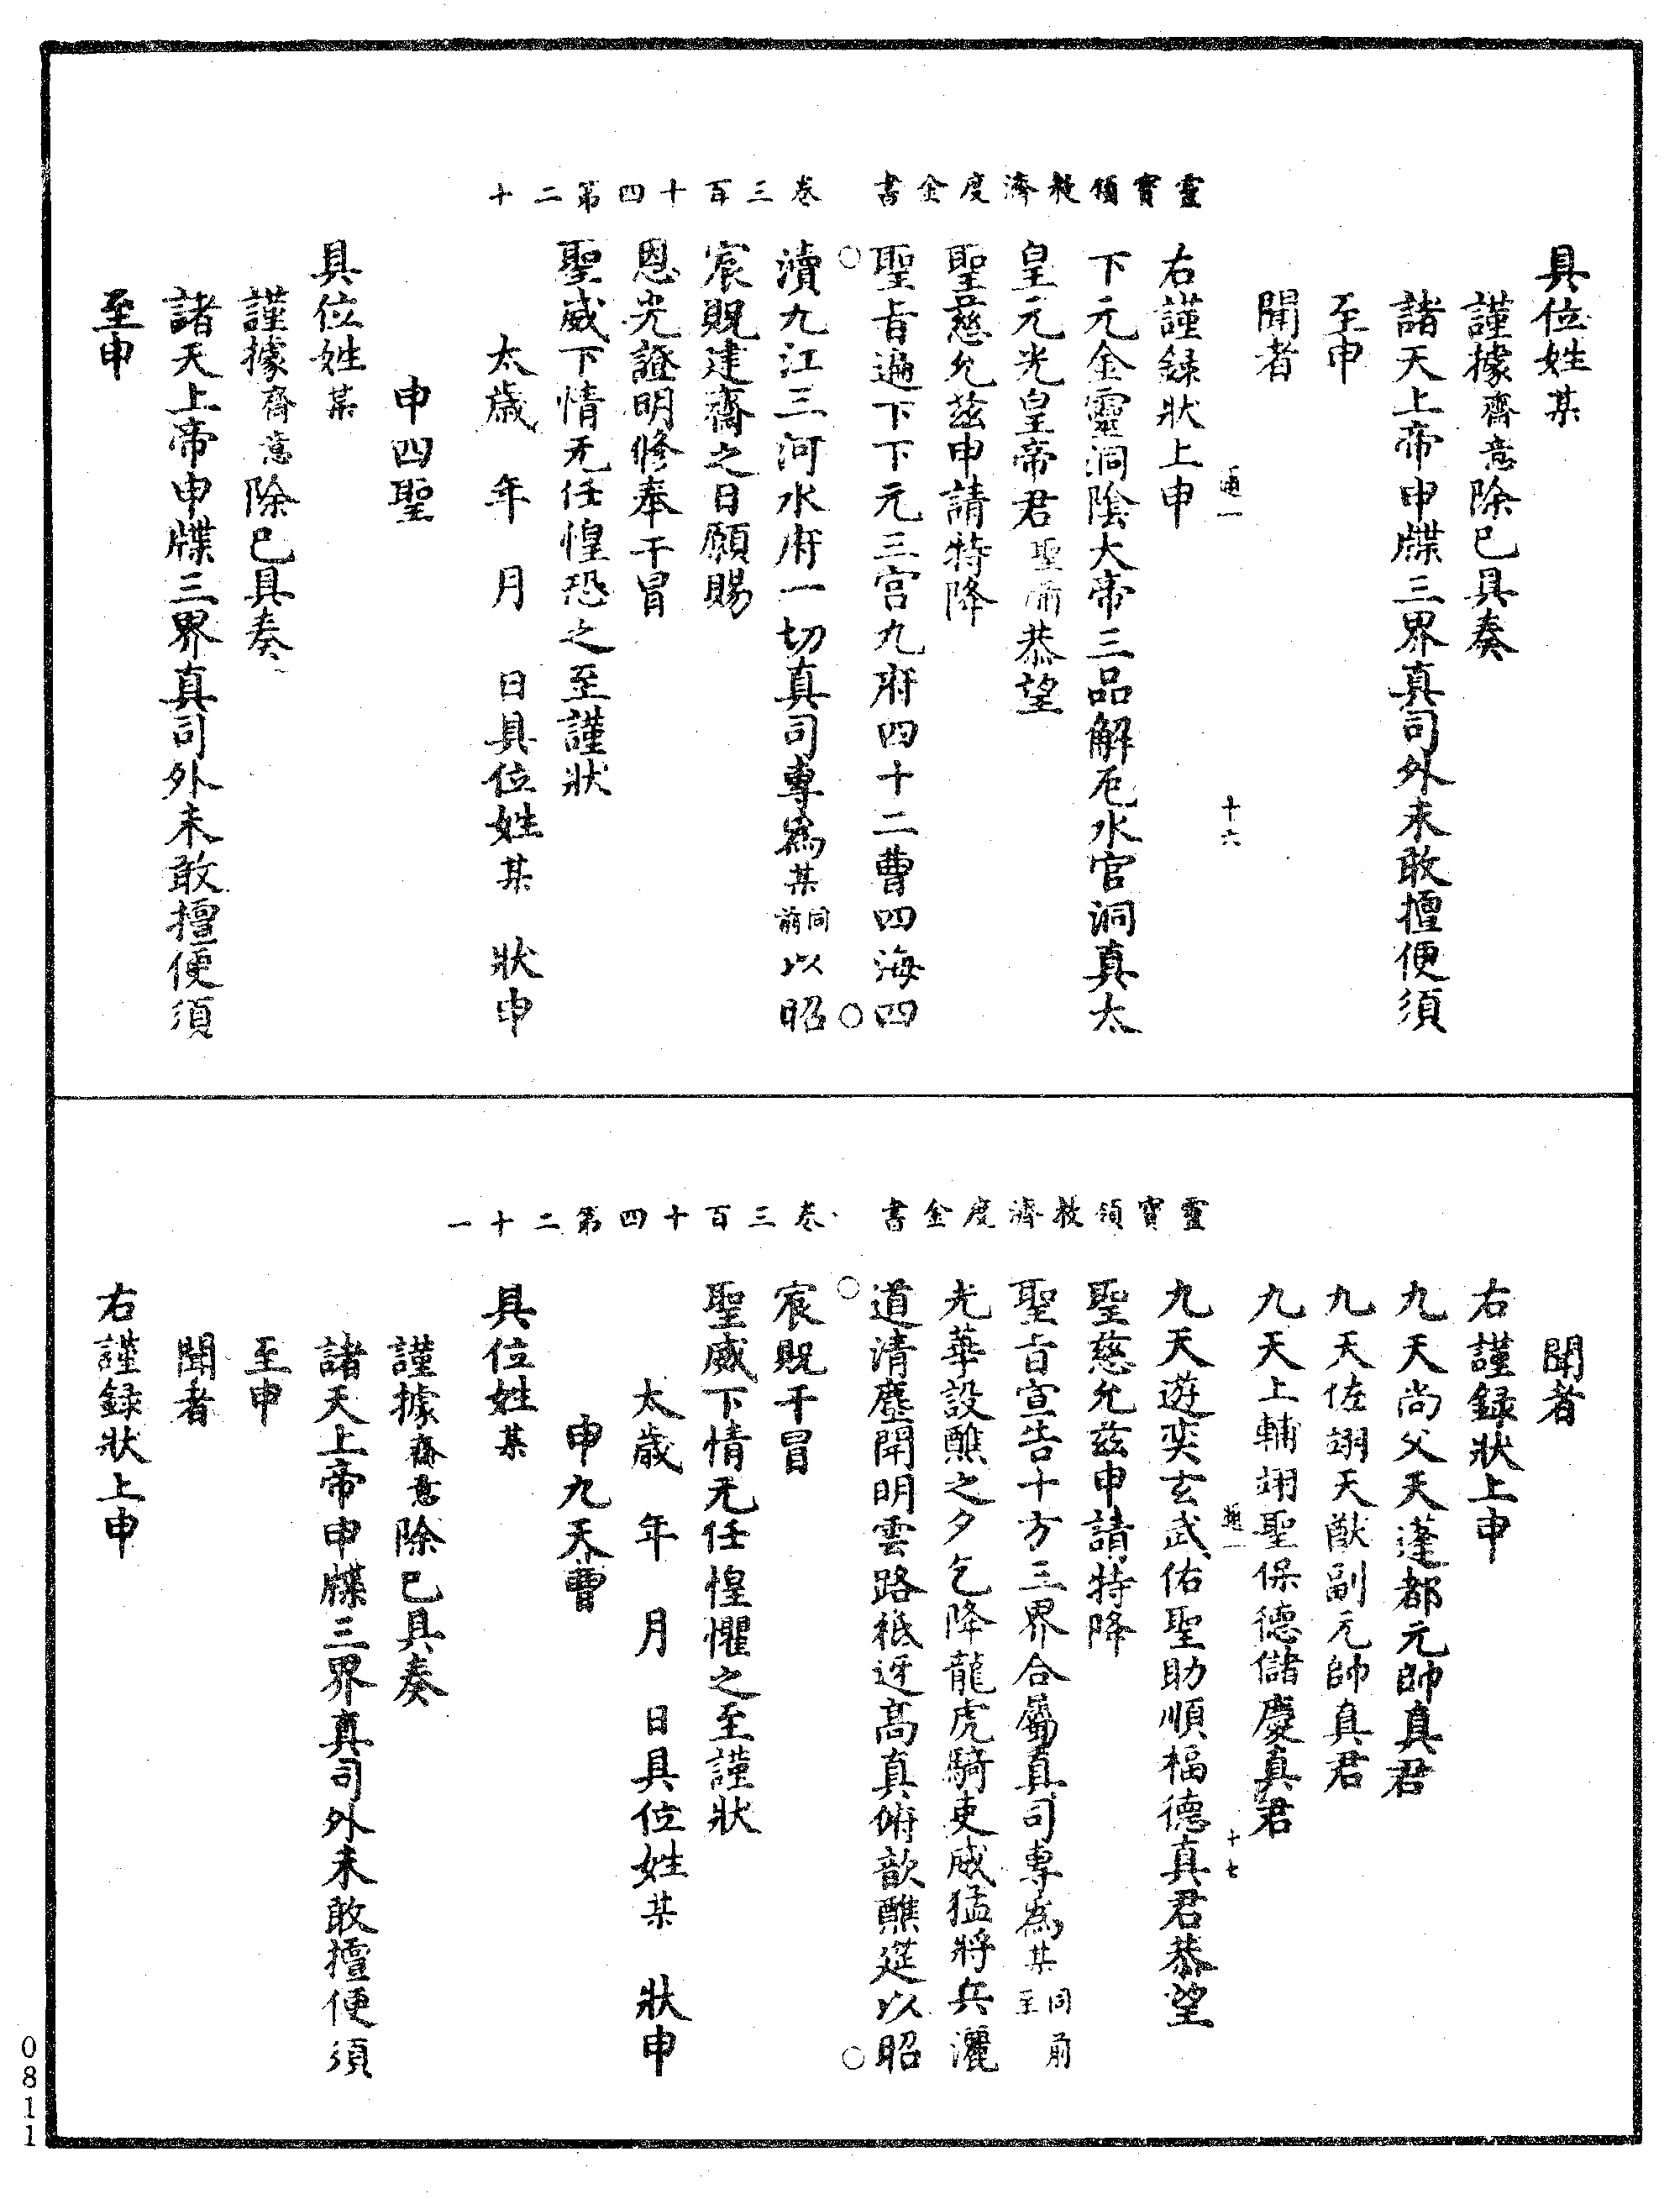 靈寶領教濟度金書　卷三百十四第二十
具位姓某
謹據齋意除已具奏
諸天上帝申牒三界真司外未敢擅便須
至申
聞者
通一　十六
右謹録狀上申
下元金靈洞陰大帝三品解厄水官洞真太
皇元光皇帝君聖前恭望
聖慈允茲申請特降
聖旨遍下下元三宫九府四十二曹四海四
瀆九江三河水府一切真司專爲某同前以昭
宸貺建齋之日願賜
恩光證明修奉干冒
聖威下情无任惶恐之至謹狀
太歲　年　月　日具位姓某　狀申
申四聖
具位姓某
謹據齋意除已具奏
諸天上帝申牒三界真司外未敢擅便須
至申
靈寶領教濟度金書　卷三百十四第二十一
聞者
右謹録狀上申
九天尚父天蓬都元帥真君
九天佐翊天猷副元帥真君
九天上輔翊聖保德儲慶真君
通一　十七
九天遊奕玄武佑聖助順福德真君恭望
聖慈允茲申請特降
聖旨宣告十方三界合屬真司專爲某同前至
光華設醮之夕乞降龍虎騎吏威猛將兵灑
道清塵開明雲路祇迓高真俯歆醮筵以昭
宸貺干冒
聖威下情无任惶懼之至謹狀
太歲　年　月　日具位姓某　狀申
申九天曹
具位姓某
謹據齋意除已具奏
諸天上帝申牒三界真司外未敢擅便須
至申
聞者
右謹録狀上申
0811